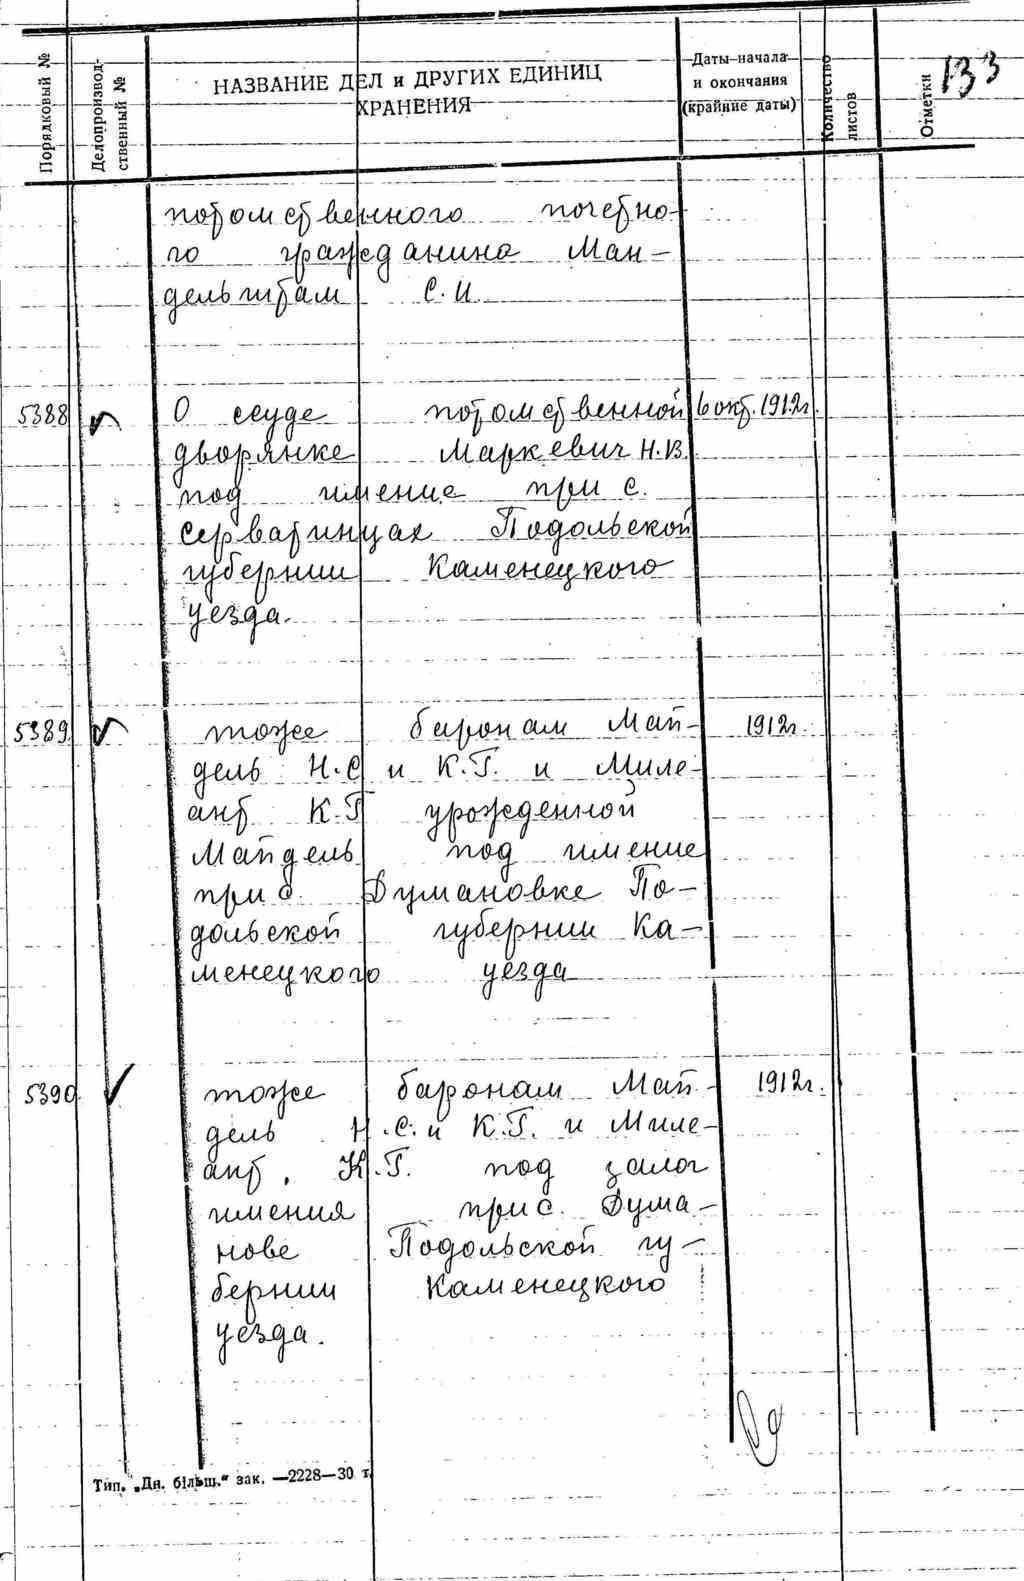 133
Порядковый №
Делопроизвод-
ственный №
НАЗВАНИЕ ДЕЛ и ДРУГИХ ЕДИНИЦ
ХРАНЕНИЯ
Даты начала
и окончания
(крайние даты)
Количество
листов
Отметки
потомственного почетно-
го гражданина Ман-
дельштам С.И.
5388 О ссуде потомственной 6 окт. 1912г.
дворянке Маркевич Н.В.
под имение при с.
Серватинцах Подольской
губернии Каменецкого
уезда.
5389 тоже баронам Май- 1912г.
дель Н.С и К.Г. и Миле-
ант К.Г урожденной
Майдель под имение
при с. Думановке По-
дольской губернии Ка-
менецкого уезда
5390 тоже баронам Май- 1912г.
дель Н.С. и К.Г. и Миле-
ант. К.Г. под залог
имения при с. Дума-
нове Подольской гу-
бернии Каменецкого
уезда.
Тип. „Дн. більш." зак. —2228—30 т.